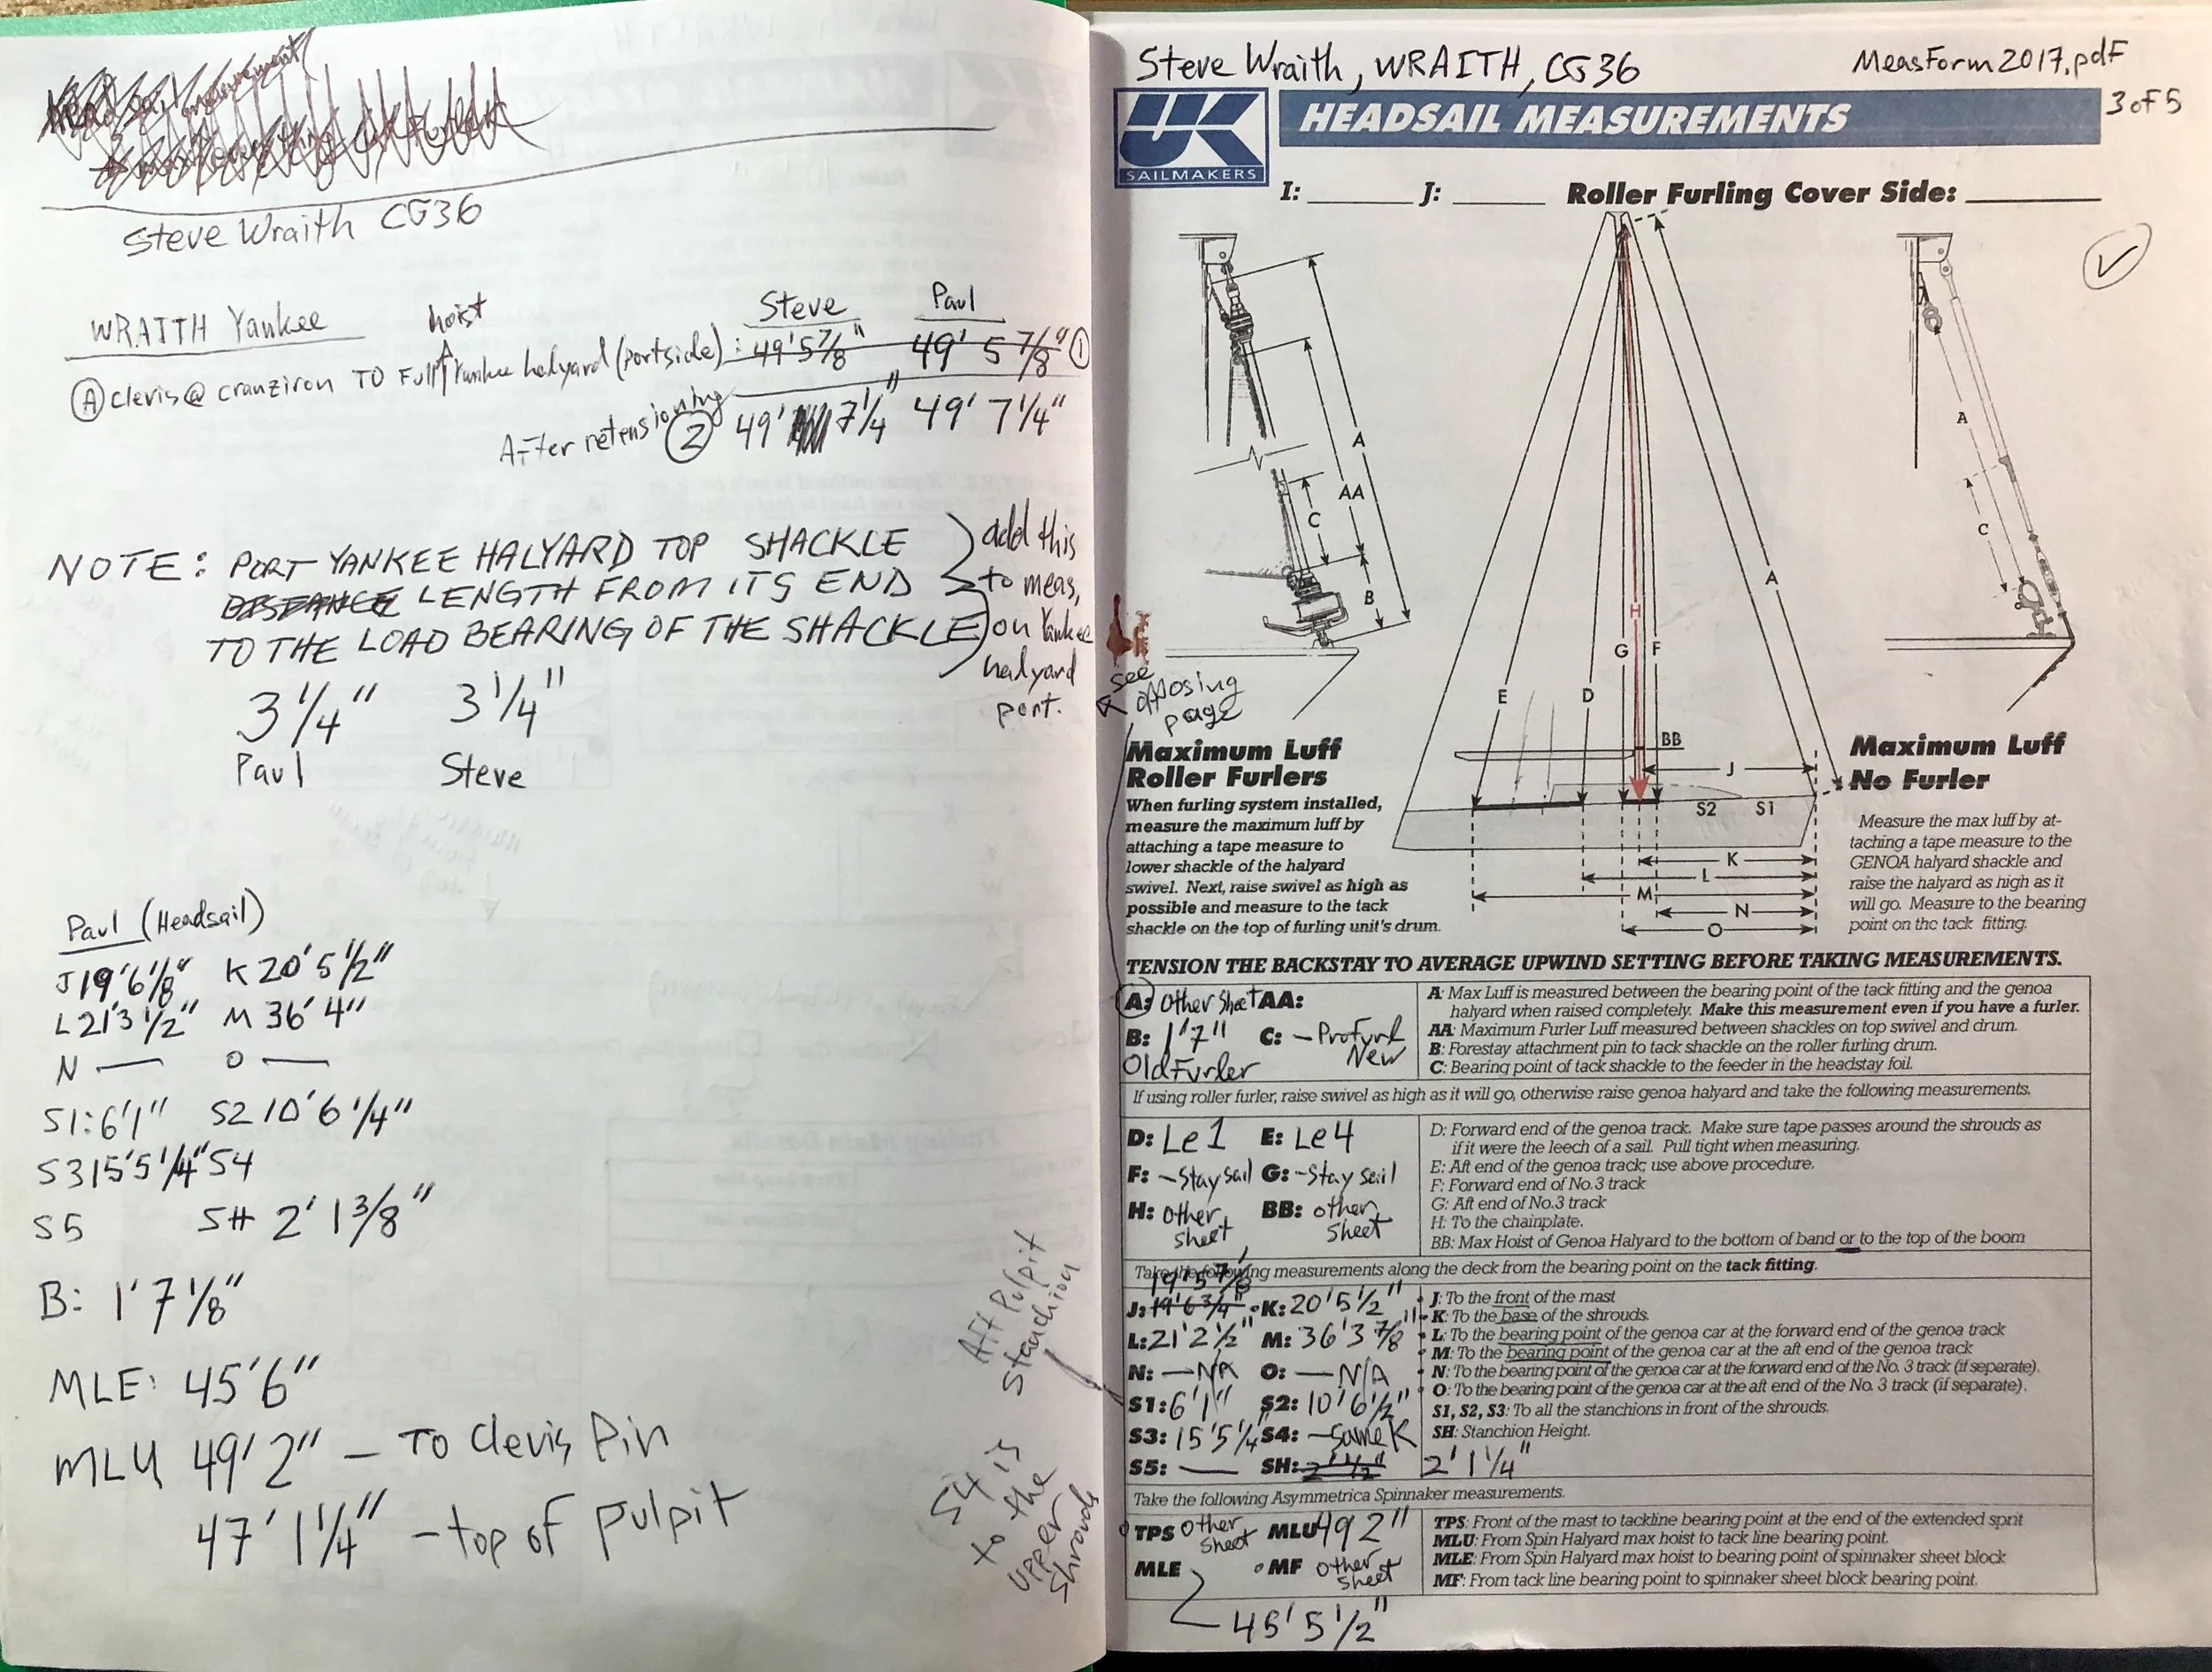 Steve Wraith CG36
WRAITH Yankee
Steve Paul
Ⓐ clevis@ cranziron TO Full hoist Yankee halyard (portside): 49' 5 7/8" 49' 5 7/8" ①
After retensioning ② 49' 7 1/4" 49' 7 1/4"
NOTE: PORT YANKEE HALYARD TOP SHACKLE
DISTANCE LENGTH FROM ITS END
TO THE LOAD BEARING OF THE SHACKLE
add this
to meas,
on Yankee
halyard
port.
3 1/4" 3 1/4"
Paul Steve
Paul (Headsail)
J 19' 6 1/8" K 20' 5 1/2"
L 21' 3 1/2" M 36' 4"
N — O —
S1: 6' 1" S2 10' 6 1/4"
S3 15' 5 1/4" S4
S5 SH 2' 1 3/8"
B: 1' 7 1/8"
MLE: 45' 6"
MLU 49' 2" - To Clevis Pin
47' 1 1/4" - top of pulpit
Aft Pulpit
Stanchion
S4 is
to the
upper
shrouds
Steve Wraith, WRAITH, CG36 MeasForm2017.pdf
3 of 5
UK
SAILMAKERS
HEADSAIL MEASUREMENTS
I: ______ J: ______ Roller Furling Cover Side: ______
A
AA
C
B
E
D
G
H
F
A
BB
J
S2 S1
K
L
M
N
O
A
C
see
opposing
page
Maximum Luff
Roller Furlers
When furling system installed,
measure the maximum luff by
attaching a tape measure to
lower shackle of the halyard
swivel. Next, raise swivel as high as
possible and measure to the tack
shackle on the top of furling unit's drum.
Maximum Luff
No Furler
Measure the max luff by at-
taching a tape measure to the
GENOA halyard shackle and
raise the halyard as high as it
will go. Measure to the bearing
point on the tack fitting.
TENSION THE BACKSTAY TO AVERAGE UPWIND SETTING BEFORE TAKING MEASUREMENTS.
A: Other Sheet AA:
B: 1' 7" C: - Profurl
Old Furler New
A: Max Luff is measured between the bearing point of the tack fitting and the genoa
halyard when raised completely. Make this measurement even if you have a furler.
AA: Maximum Furler Luff measured between shackles on top swivel and drum.
B: Forestay attachment pin to tack shackle on the roller furling drum.
C: Bearing point of tack shackle to the feeder in the headstay foil.
If using roller furler, raise swivel as high as it will go, otherwise raise genoa halyard and take the following measurements.
D: Le1 E: Le4
F: - Staysail G: - Staysail
H: other sheet BB: other sheet
D: Forward end of the genoa track. Make sure tape passes around the shrouds as
if it were the leech of a sail. Pull tight when measuring.
E: Aft end of the genoa track; use above procedure.
F: Forward end of No.3 track
G: Aft end of No.3 track
H: To the chainplate.
BB: Max Hoist of Genoa Halyard to the bottom of band or to the top of the boom
Take the following measurements along the deck from the bearing point on the tack fitting.
19' 5 7/8"
J: 19' 6 3/4" K: 20' 5 1/2"
L: 21' 2 1/2" M: 36' 3 7/8"
N: — N/A O: — N/A
S1: 6' 1" S2: 10' 6 1/2"
S3: 15' 5 1/4" S4: - Same K
S5: — SH: 2' 1/2" 2' 1 1/4"
J: To the front of the mast
K: To the base of the shrouds.
L: To the bearing point of the genoa car at the forward end of the genoa track
M: To the bearing point of the genoa car at the aft end of the genoa track
N: To the bearing point of the genoa car at the forward end of the No. 3 track (if separate).
O: To the bearing point of the genoa car at the aft end of the No. 3 track (if separate).
S1, S2, S3: To all the stanchions in front of the shrouds.
SH: Stanchion Height.
Take the following Asymmetrica Spinnaker measurements.
TPS other sheet MLU 49 2"
MLE MF other sheet
45' 5 1/2"
TPS: Front of the mast to tackline bearing point at the end of the extended sprit
MLU: From Spin Halyard max hoist to tack line bearing point.
MLE: From Spin Halyard max hoist to bearing point of spinnaker sheet block
MF: From tack line bearing point to spinnaker sheet block bearing point.